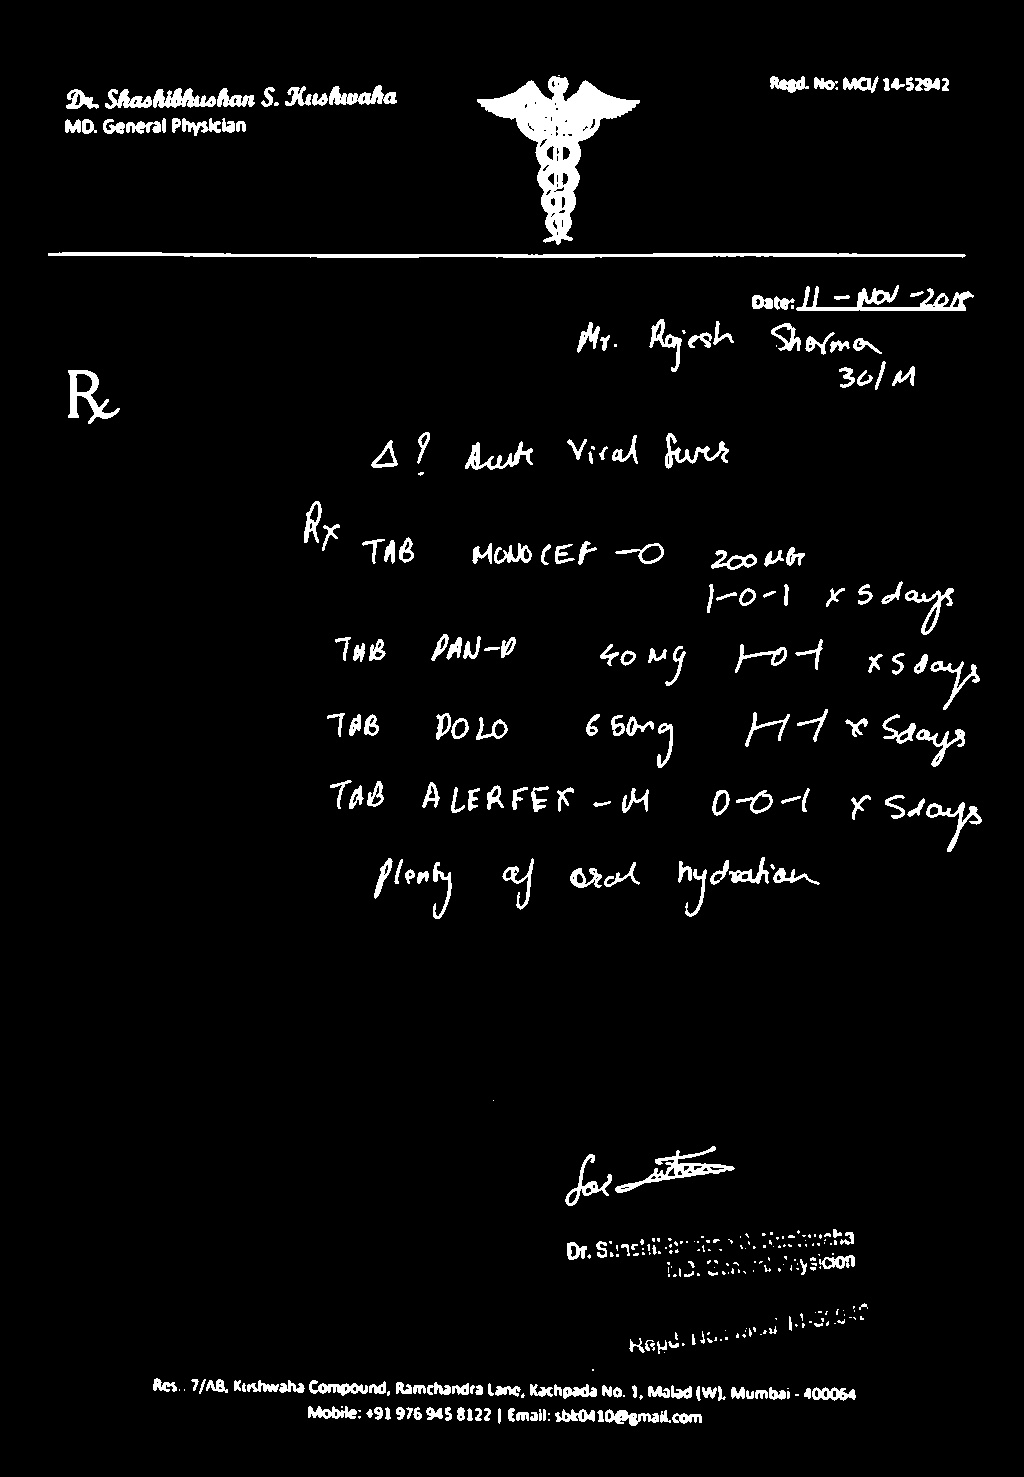 Dr. Shashibhushan S. Kushwaha
MD. General Physician
Regd. No: MCI/ 14-52942
Date: 11 - NOV - 2018
Mr. Rajesh Sharma
30/M
Rx
Δ ? Acute Viral fever
Rx
TAB MONOCEF - O 200 MG
1-0-1 x 5 days
TAB PAN-D 40 Mg 1-0-1 x 5 days
TAB DOLO 650mg 1-1-1 x 5days
TAB ALERFEX - M 0-0-1 x 5days
Plenty of oral hydration
Dr.
Regd.
Res.: 7/AB, Kushwaha Compound, Ramchandra Lane, Kachpada No. 1, Malad (W), Mumbai - 400064
Mobile: +91 976 945 8122 | Email: sbk0410@gmail.com